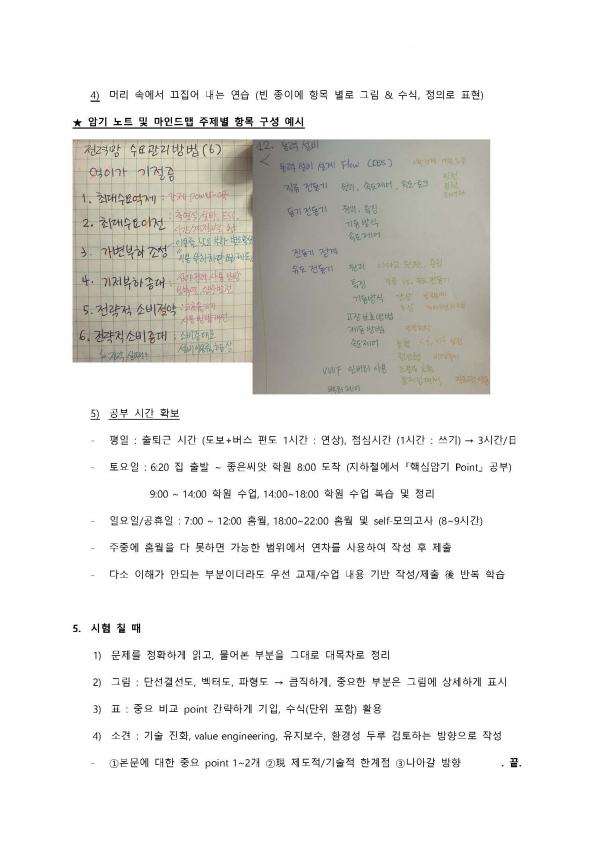 4) 머리 속에서 끄집어 내는 연습 (빈 종이에 항목 별로 그림 & 수식, 정의로 표현)
★ 암기 노트 및 마인드맵 주제별 항목 구성 예시
전력망 수요관리방법(6)
1. 최대수요억제 :
2. 최대수요이전 :
3. 가변부하조성
4. 기저부하증대 :
5. 전략적소비절약 :
6. 전략적소비증대 :
12. 동력설비
동력설비 설계 Flow
직류 전동기 원리, 속도제어,
동기 전동기 원리, 특징
기동방식
속도제어
유도 전동기 원리
특징
기동방식
고장보호방법
제동방법
속도제어
VVVF 인버터 사용
5) 공부 시간 확보
- 평일 : 출퇴근 시간 (도보+버스 편도 1시간 : 연상), 점심시간 (1시간 : 쓰기) → 3시간/日
- 토요일 : 6:20 집 출발 ~ 좋은씨앗 학원 8:00 도착 (지하철에서『핵심암기 Point』공부)
9:00 ~ 14:00 학원 수업, 14:00~18:00 학원 수업 복습 및 정리
- 일요일/공휴일 : 7:00 ~ 12:00 홈월, 18:00~22:00 홈월 및 self-모의고사 (8~9시간)
- 주중에 홈월을 다 못하면 가능한 범위에서 연차를 사용하여 작성 후 제출
- 다소 이해가 안되는 부분이더라도 우선 교재/수업 내용 기반 작성/제출 後 반복 학습
5. 시험 칠 때
1) 문제를 정확하게 읽고, 물어본 부분을 그대로 대목차로 정리
2) 그림 : 단선결선도, 벡터도, 파형도 → 큼직하게, 중요한 부분은 그림에 상세하게 표시
3) 표 : 중요 비교 point 간략하게 기입, 수식(단위 포함) 활용
4) 소견 : 기술 진화, value engineering, 유지보수, 환경성 두루 검토하는 방향으로 작성
- ①본문에 대한 중요 point 1~2개 ②現 제도적/기술적 한계점 ③나아갈 방향 . 끝.